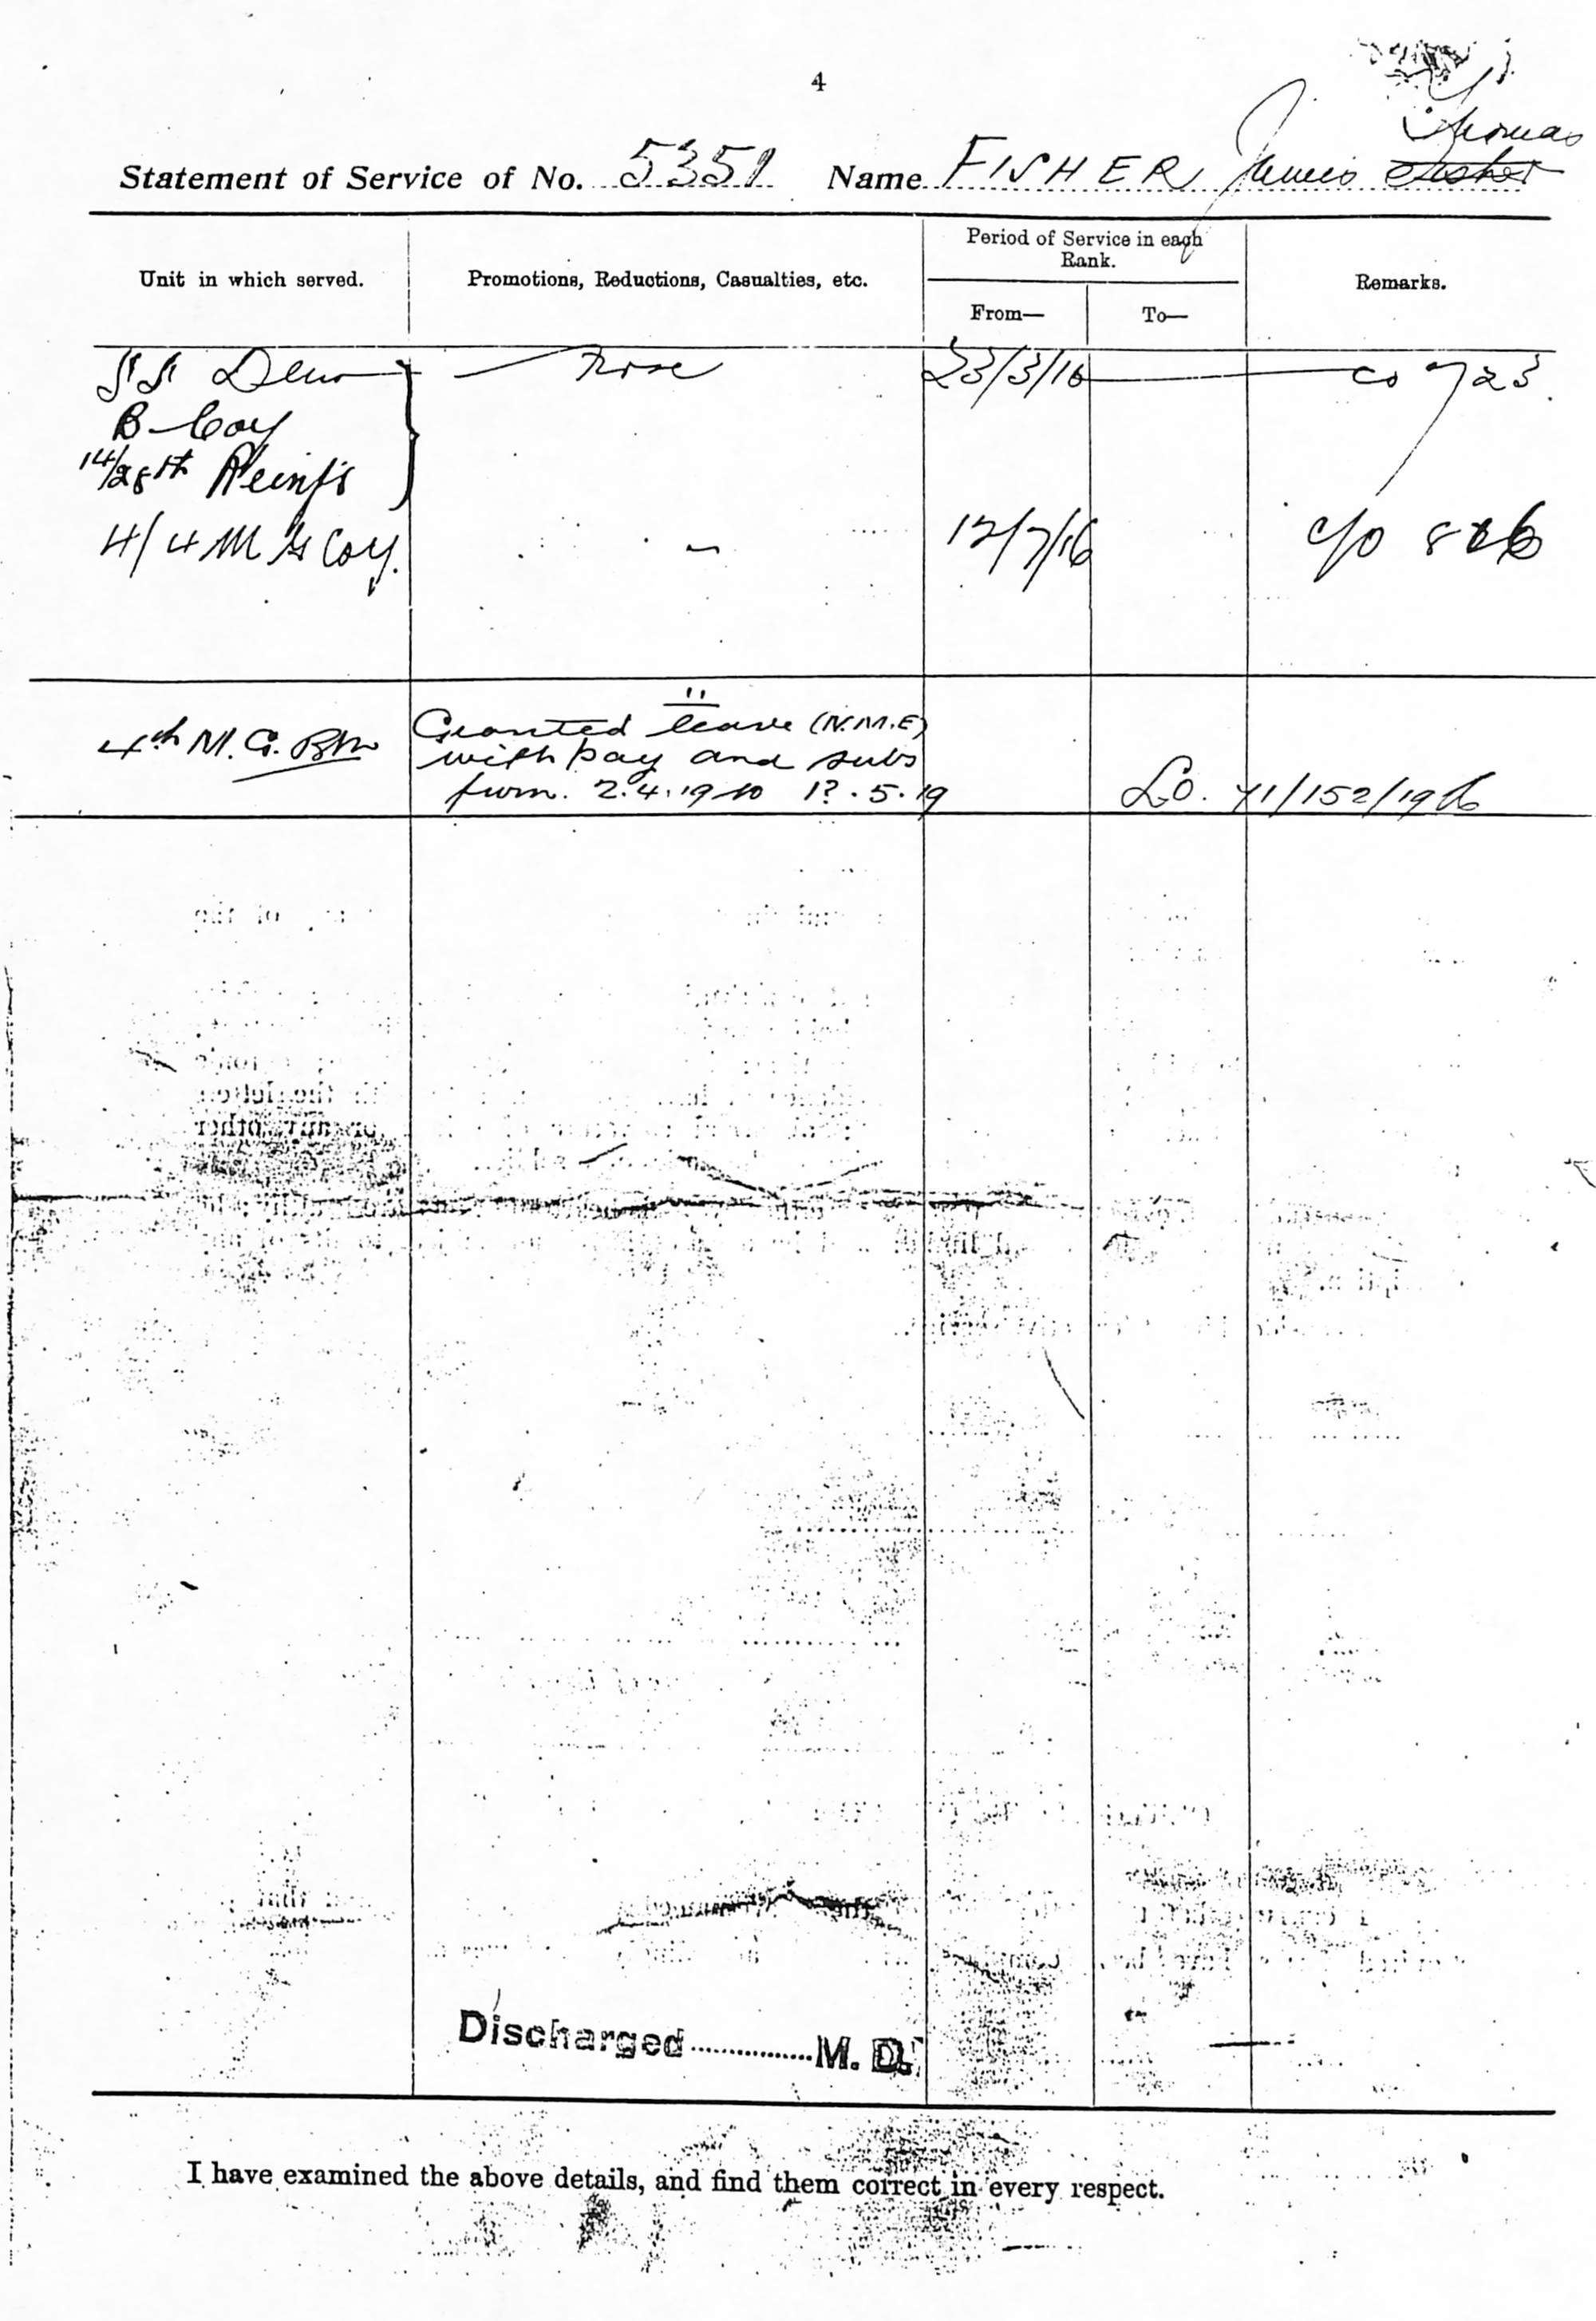 4
Thomas
Statement of Service of No. 5351 Name FISHER James
Period of Service in each
Rank.
Unit in which served. Promotions, Reductions, Casualties, etc. Remarks.
From— To—
23/3/16 co 723
B Coy
14/28th Reinfs
4/4 M G Coy. 12/7/16 c/o 826
"
4th M.G. Bn Granted leave (N.M.E)
with pay and subs
from 2.4.19 to 1?.5.19
Discharged M. D.
I have examined the above details, and find them correct in every respect.